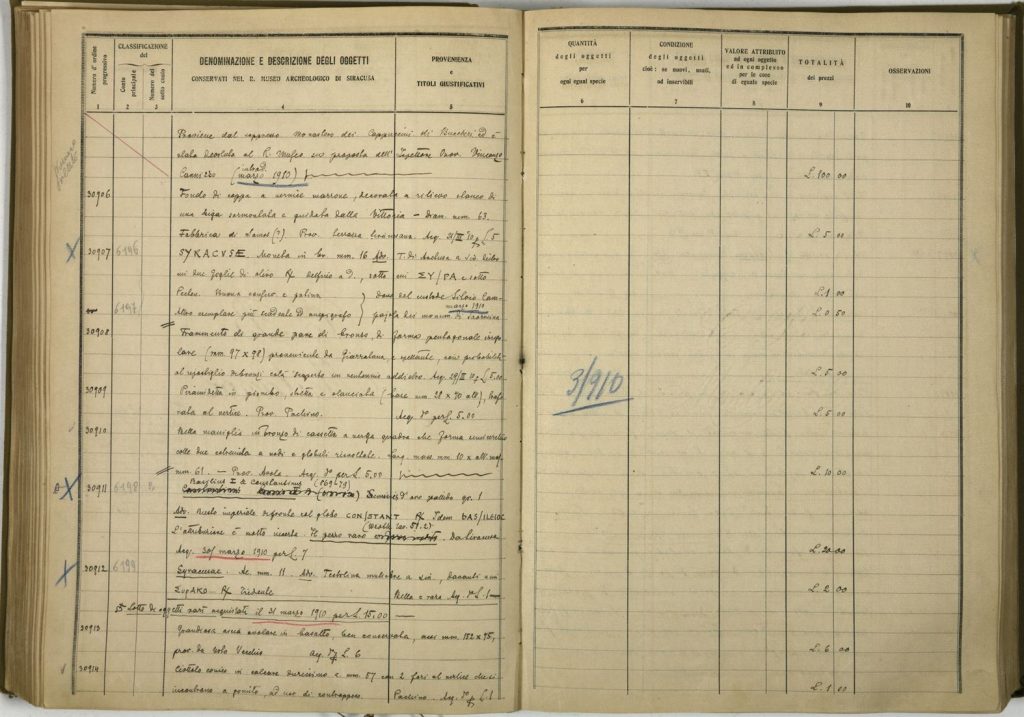 Numero d'ordine progressivo
CLASSIFICAZIONE del
Conto principale
Numero del sotto conto
DENOMINAZIONE E DESCRIZIONE DEGLI OGGETTI
CONSERVATI NEL R. MUSEO ARCHEOLOGICO DI SIRACUSA
PROVENIENZA
e
TITOLI GIUSTIFICATIVI
1 2 3 4 5
Proviene dal soppresso Monastero dei Cappuccini di Buccheri ed è
stata devoluta al R. Museo su proposta dell' Ispettore Onor. Vincenzo
(marzo 1910)
30906 Fondo di coppa a vernice marrone, decorata a rilievo
una biga sormontata e guidata dalla Vittoria – Diam. mm. 63.
Fabbrica di (?) Prov. Acq. 31/III 10 p. L 5
30907 6196 SYRACUSE. Moneta in br. mm. 16 Ads. T. di Aretusa a sin. dietro
due foglie di olivo R delfino a D., sotto ΣΥ/ΡΑ e sotto
Pecten. Buona conserv. e patina Dono del custode Silvio
6197 Altro esemplare più scadente ed anepigrafo marzo 1910
30908 Frammento di grande pane di bronzo, di forma pentagonale
(mm. 97 x 98) proveniente da Giarratana, e spettante, con probabilità
al ripostiglio di bronzi colà scoperto un ventennio addietro. Acq. 29/III 10 p. L 5.00
30909 Piramidetta in piombo, stretta e slanciata (base mm. 28 x 70 alt),
al vertice. Prov. Pachino. Acq. per L. 5.00
30910 Bella maniglia in bronzo di cassetta a verga quadra
colle due estremità a nodi e globetti rivoltate. Larg. mass. mm. 10 x alt. mass.
mm. 61. – Prov. Avola. Acq. per L 5,00
Basilius II & Constantinus (969-73)
30911 6198 d'oro pallido gr. 1
Ads. Busto imperiale di fronte col globo CONSTANT R Idem BAS/ILEIOC
L'attribuzione è molto incerta. Il pezzo raro Da Siracusa
Acq. 30/ marzo 1910 per L 7
30912 6199 Syracusae. Ae. mm. 11 Ads. Testolina muliebre a sin., davanti
ΣυρΑΚΟ R Tridente Bella e rara Acq. L. 1
Lotto di oggetti vari acquistati il 31 marzo 1910 per L 15,00 –
30913 Grandiosa ascia in basalto, ben conservata, mm. 152 x 75,
prov. da Noto Vecchio Acq. L. 6
30914 Ciottolo conico in calcare durissimo e mm. 57 con 2 fori al vertice che si
incontrano a gomito, ad uso di contrappeso. Pachino. Acq. L. 1
QUANTITÀ
degli oggetti
per
ogni egual specie
CONDIZIONE
degli oggetti
cioè: se nuovi, usati,
od inservibili
VALORE ATTRIBUITO
ad ogni oggetto
ed in complesso
per le cose
di eguale specie
TOTALITÀ
dei prezzi
OSSERVAZIONI
6 7 8 9 10
L. 100 00
L. 5 00
L. 1 00
L. 0 50
3/910
L. 5 00
L. 5 00
L. 10 00
L. 20 00
L. 2 00
L. 6 00
L. 1 00